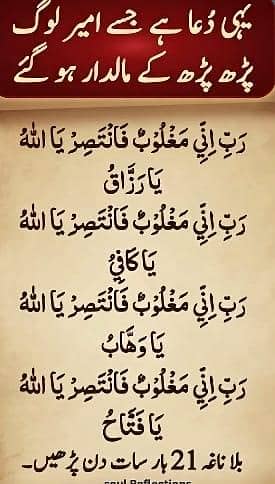 یہی دُعا ہے جسے امیر لوگ
پڑھ پڑھ کے مالدار ہو گئے
رَبِّ اِنِّي مَغْلُوْبٌ فَانْتَصِرْ يَا اللهُ
يَا رَزَّاقُ
رَبِّ اِنِّي مَغْلُوْبٌ فَانْتَصِرْ يَا اللهُ
يَا كَافِيُ
رَبِّ اِنِّي مَغْلُوْبٌ فَانْتَصِرْ يَا اللهُ
يَا وَهَّابُ
رَبِّ اِنِّي مَغْلُوْبٌ فَانْتَصِرْ يَا اللهُ
يَا فَتَّاحُ
بلا ناغہ 21 بار سات دن پڑھیں۔
soul Reflections